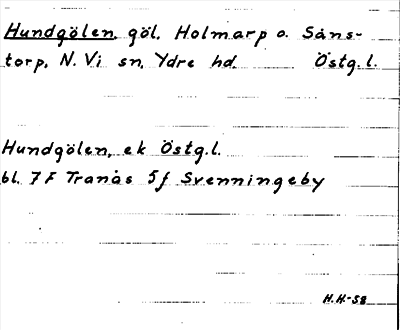 Hundgölen, göl, Holmarp o. Såns-
torp, N. Vi sn, Ydre hd. Östg.l.
Hundgölen, ek Östg.l.
bl. 7F Tranås 5f Svenningeby
H.H.-58